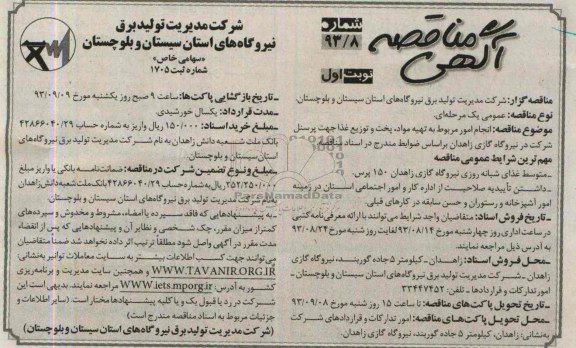 آگهی مناقصه
شماره
۹۳/۸
نوبت اول
شرکت مدیریت تولید برق
نیروگاه‌های استان سیستان و بلوچستان
«سهامی خاص»
شماره ثبت ۱۷۰۵
مناقصه گزار: شرکت مدیریت تولید برق نیروگاه‌های استان سیستان و بلوچستان.
نوع مناقصه: عمومی یک مرحله‌ای.
موضوع مناقصه: انجام امور مربوط به تهیه مواد، پخت و توزیع غذا جهت پرسنل
شرکت در نیروگاه گازی زاهدان براساس ضوابط مندرج در اسناد مناقصه.
مهم‌ترین شرایط عمومی مناقصه
ـ متوسط غذای شبانه روزی نیروگاه گازی زاهدان ۱۵۰ پرس.
ـ داشتن تأییدیه صلاحیت از اداره کار و امور اجتماعی استان در زمینه
امور آشپزخانه و رستوران و حسن سابقه در کارهای قبلی.
ـ تاریخ فروش اسناد: متقاضیان واجد شرایط می‌توانند با ارائه معرفی‌نامه کتبی
در ساعات اداری روز چهارشنبه مورخ ۹۳/۰۸/۱۴ لغایت روز شنبه مورخ ۹۳/۰۸/۲۴
به آدرس ذیل مراجعه نمایند.
ـ محل فروش اسناد: زاهدان ـ کیلومتر ۵ جاده گوربند، نیروگاه گازی
زاهدان ـ شرکت مدیریت تولید برق نیروگاه‌های استان سیستان و بلوچستان ـ
امور تدارکات و قراردادها ـ تلفن: ۳۳۴۴۷۴۵۲
ـ تاریخ تحویل پاکت‌های مناقصه: تا ساعت ۱۵ روز شنبه مورخ ۹۳/۰۹/۰۸
ـ محل تحویل پاکت‌های مناقصه: امور تدارکات و قراردادهای شرکت
به نشانی: زاهدان، کیلومتر ۵ جاده گوربند، نیروگاه گازی زاهدان.
ـ تاریخ بازگشایی پاکت‌ها: ساعت ۹ صبح روز یکشنبه مورخ ۹۳/۰۹/۰۹
ـ مدت قرارداد: یکسال خورشیدی.
ـ مبلغ خرید اسناد: ۱۵۰/۰۰۰ ریال واریز به شماره حساب ۴۲۸۶۶۰۴۰/۲۹
بانک ملت شعبه دانش زاهدان به نام شرکت مدیریت تولید برق نیروگاه‌های
استان سیستان و بلوچستان.
ـ مبلغ و نوع تضمین شرکت در مناقصه: ضمانت‌نامه بانکی یا واریز مبلغ
۲۵۲/۲۵۰/۰۰۰ ریال به شماره حساب ۴۲۸۶۶۰۴۰/۲۹ بانک ملت شعبه دانش زاهدان
بنام شرکت مدیریت تولید برق نیروگاه‌های استان سیستان و بلوچستان.
ـ به پیشنهادهایی که فاقد سپرده یا امضاء، مشروط و مخدوش و سپرده‌های
کمتر از میزان مقرر، چک شخصی و نظایر آن و پیشنهادهایی که پس از انقضاء
مدت مقرر در آگهی واصل شود مطلقاً ترتیب اثر داده نخواهد شد ضمناً متقاضیان
می‌توانند جهت کسب اطلاعات بیشتر به سایت معاملات توانیر به نشانی
WWW.TAVANIR.ORG.IR و همچنین سایت مدیریت و برنامه‌ریزی
کشور به آدرس: www.iets.mporg.ir مراجعه نمایند. بدیهی است این
شرکت در رد یا قبول یک و یا کلیه پیشنهادها مختار است. (سایر اطلاعات و
جزئیات مربوط به اسناد مناقصه مندرج است)
(شرکت مدیریت تولید برق نیروگاه‌های استان سیستان و بلوچستان)
ParsNamadData